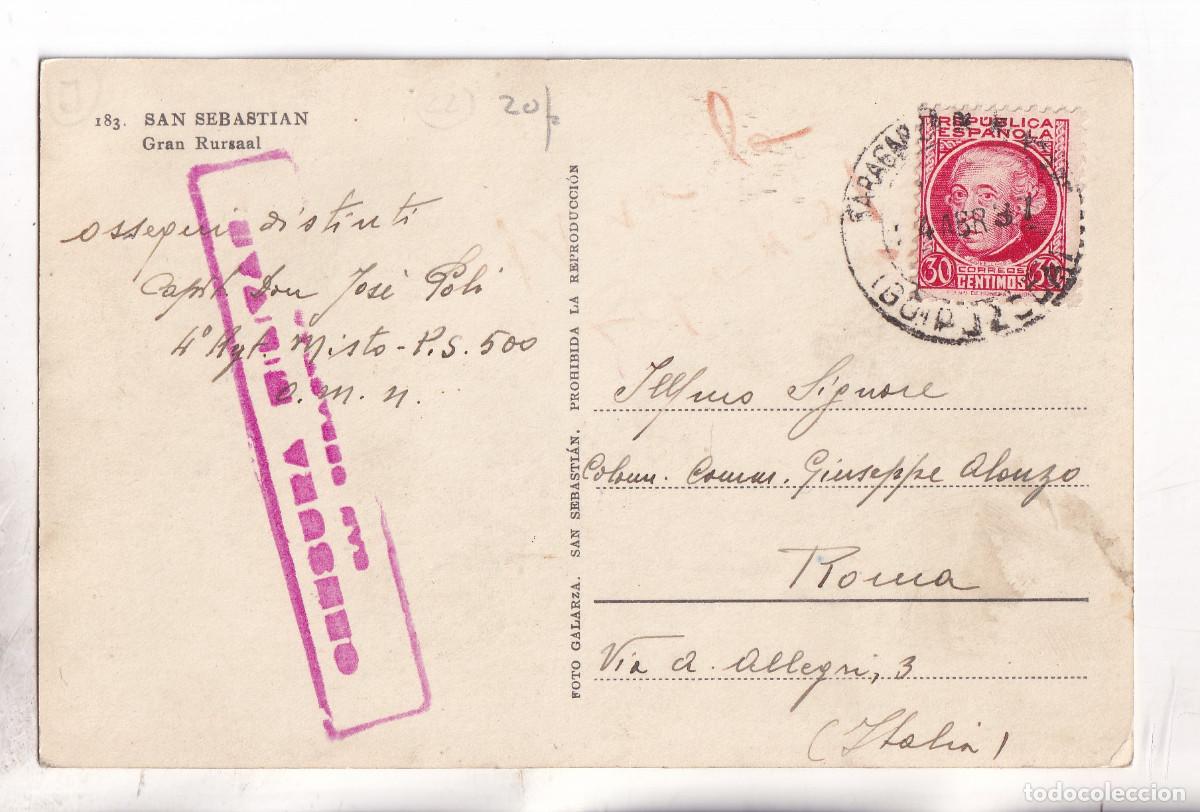 183. SAN SEBASTIAN
Gran Rursaal
20
ossequi distinti
Capit. Don José Poli
4º Rgt. Misto - P.S. 500
O. M. N.
CENSURA MILITAR
SAN SEBASTIAN
FOTO GALARZA. SAN SEBASTIÁN. PROHIBIDA LA REPRODUCCIÓN
REPÚBLICA
ESPAÑOLA
30 CORREOS 30
CENTIMOS
4 ABR 37
(GUIPUZCOA)
Illmo Signore
Colonn. Comm. Giuseppe Alonzo
Roma
Via A. Allegri, 3
(Italia)
todocoleccion